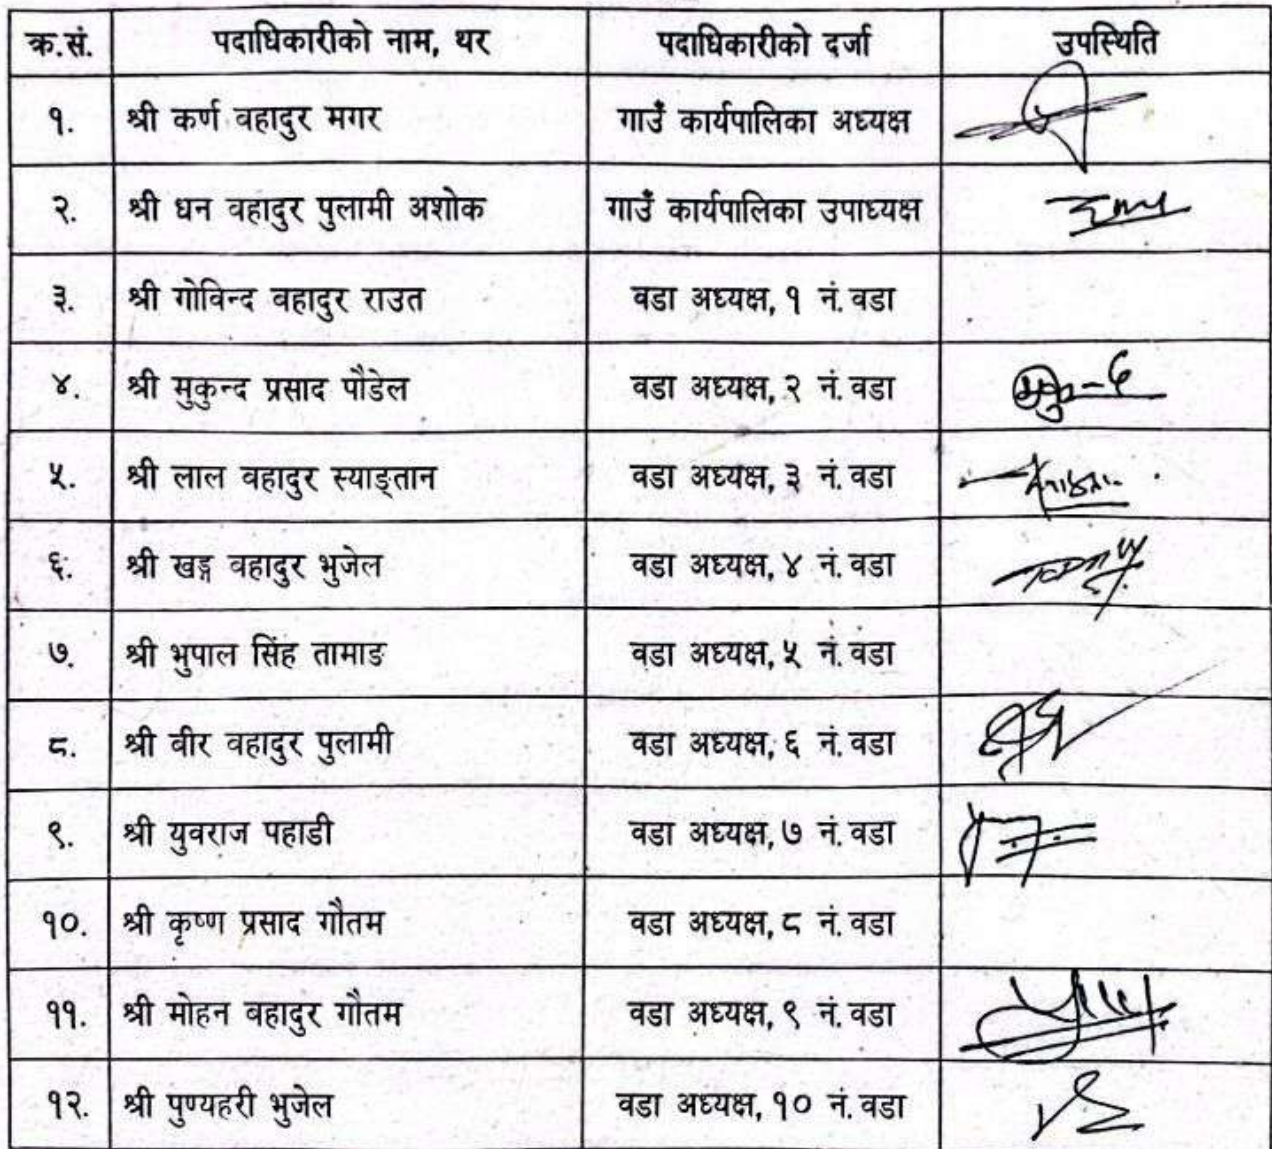 क्र.सं. पदाधिकारीको नाम, थर पदाधिकारीको दर्जा उपस्थिति
१. श्री कर्ण वहादुर मगर गाउँ कार्यपालिका अध्यक्ष
२. श्री धन वहादुर पुलामी अशोक गाउँ कार्यपालिका उपाध्यक्ष
३. श्री गोविन्द वहादुर राउत वडा अध्यक्ष, १ नं. वडा
४. श्री मुकुन्द प्रसाद पौडेल वडा अध्यक्ष, २ नं. वडा
५. श्री लाल वहादुर स्याङ्तान वडा अध्यक्ष, ३ नं. वडा
६. श्री खड्ग वहादुर भुजेल वडा अध्यक्ष, ४ नं. वडा
७. श्री भुपाल सिंह तामाङ वडा अध्यक्ष, ५ नं. वडा
८. श्री वीर वहादुर पुलामी वडा अध्यक्ष, ६ नं. वडा
९. श्री युवराज पहाडी वडा अध्यक्ष, ७ नं. वडा
१०. श्री कृष्ण प्रसाद गौतम वडा अध्यक्ष, ८ नं. वडा
११. श्री मोहन वहादुर गौतम वडा अध्यक्ष, ९ नं. वडा
१२. श्री पुण्यहरी भुजेल वडा अध्यक्ष, १० नं. वडा